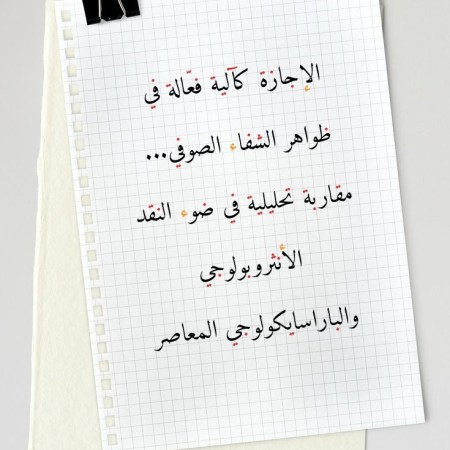 الإجازة كآلية فعّالة في
ظواهر الشفاء الصوفي...
مقاربة تحليلية في ضوء النقد
الأنثروبولوجي
والباراسايكولوجي المعاصر